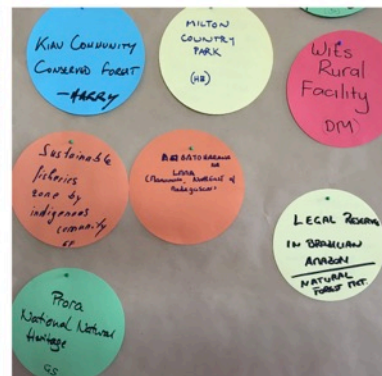 KIAU COMMUNITY
CONSERVED FOREST
– HARRY
MILTON
COUNTRY
PARK
(HB)
Wits
Rural
Facility
DM
Sustainable
fisheries
zone by
indigenous
community
LEGAL RESERVE
IN BRAZILIAN
AMAZON
NATURAL
FOREST MGT.
Prora
National Natural
Heritage
GS